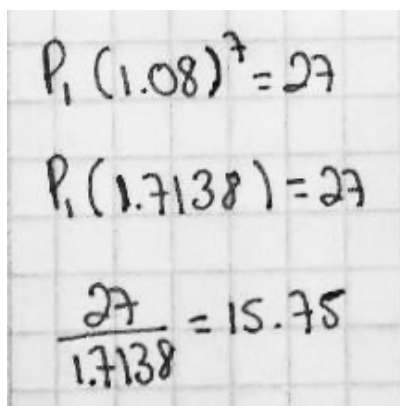 P₁(1.08)⁷=27
P₁(1.7138)=27
27/1.7138 = 15.75